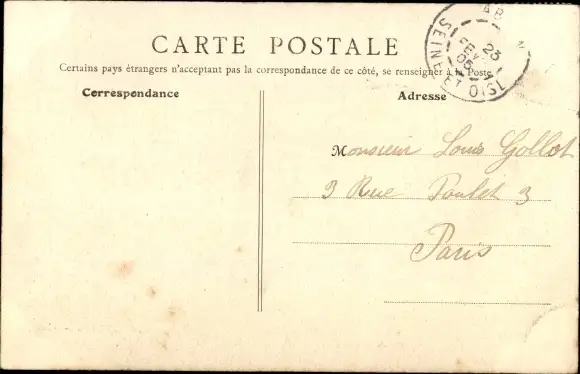 CARTE POSTALE
Certains pays étrangers n'acceptant pas la correspondance de ce côté, se renseigner à la Poste
Correspondance
Adresse
Monsieur Louis Gollot
3 Rue Poulet 3
Paris
SEINE ET OISE
23